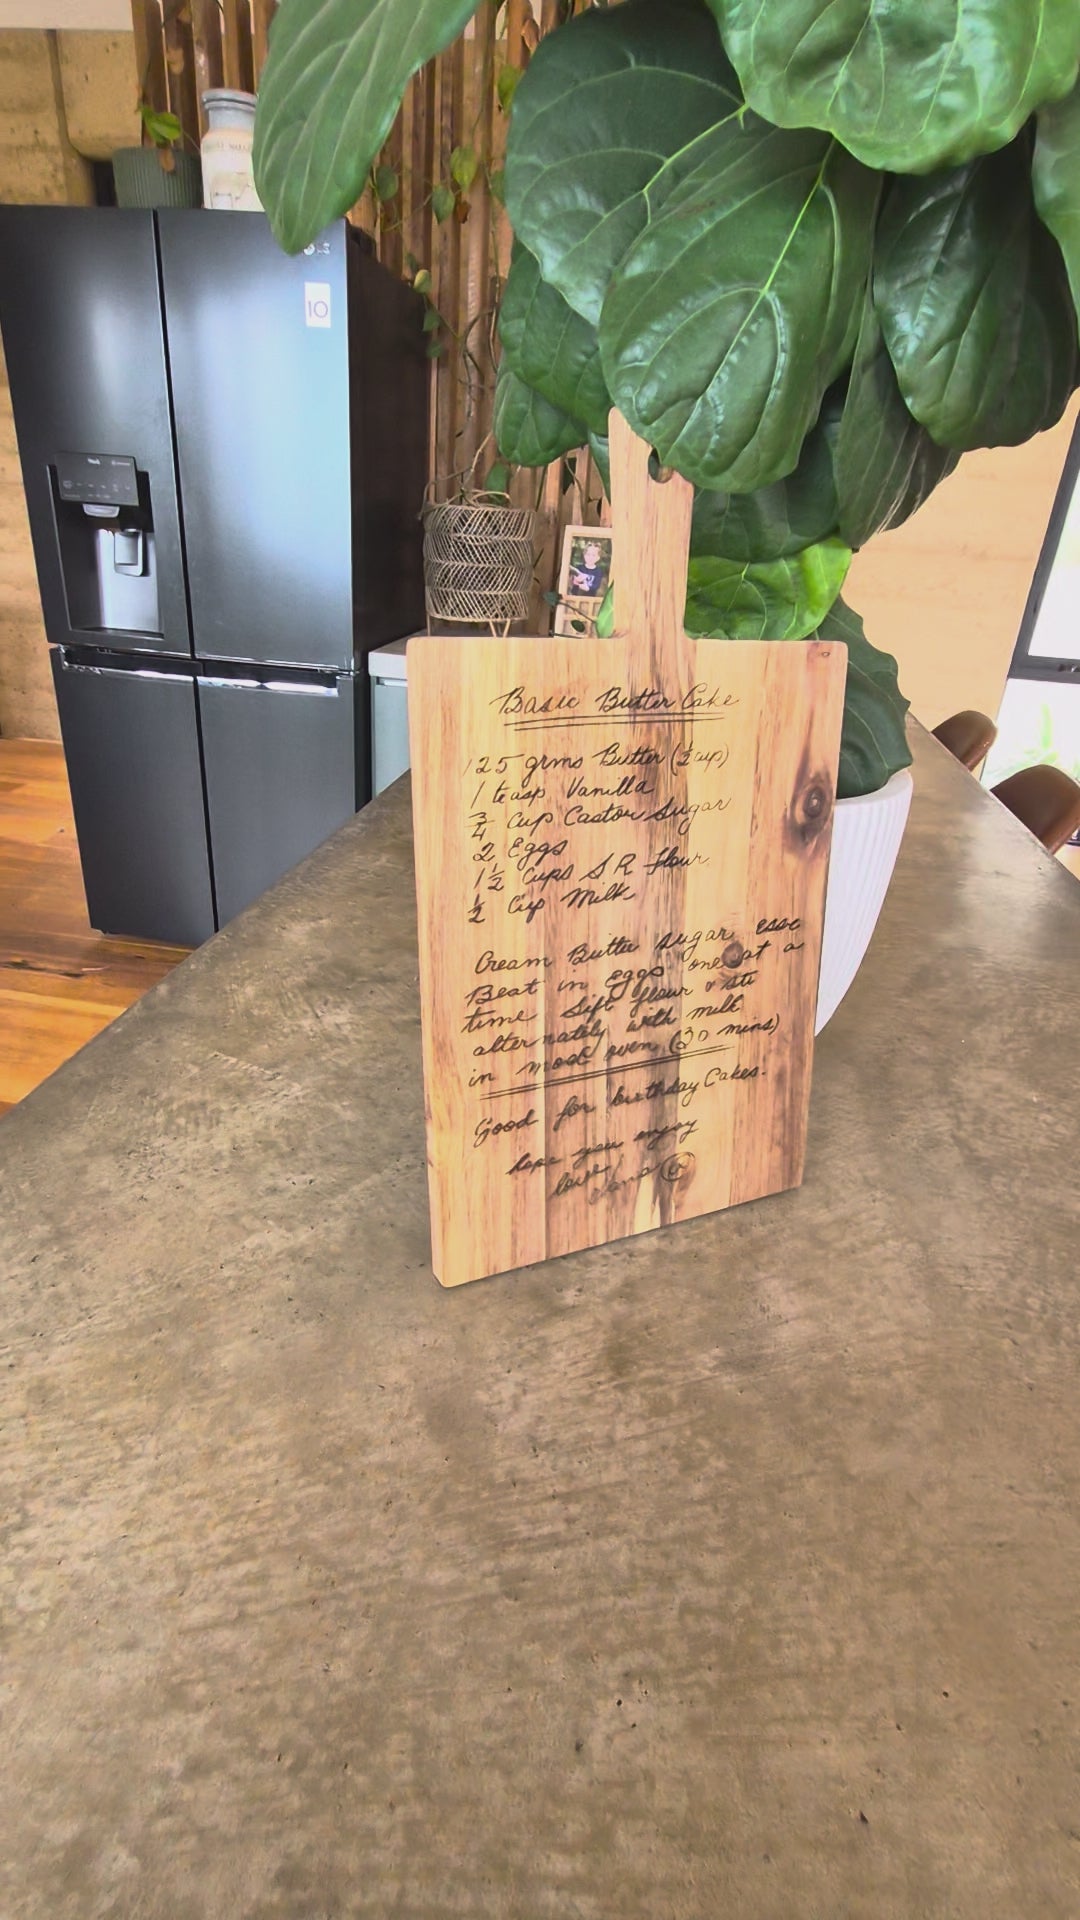 10
Basic Butter Cake
125 grms Butter (½ cup)
1 teasp Vanilla
¾ Cup Castor Sugar
2 Eggs
1½ Cups S R Flour
½ Cup Milk
Cream Butter sugar esse
Beat in Eggs one at a
time Sift flour & sti
alternately with milk
in mod oven (30 mins)
Good for birthday Cakes.
hope you enjoy
love